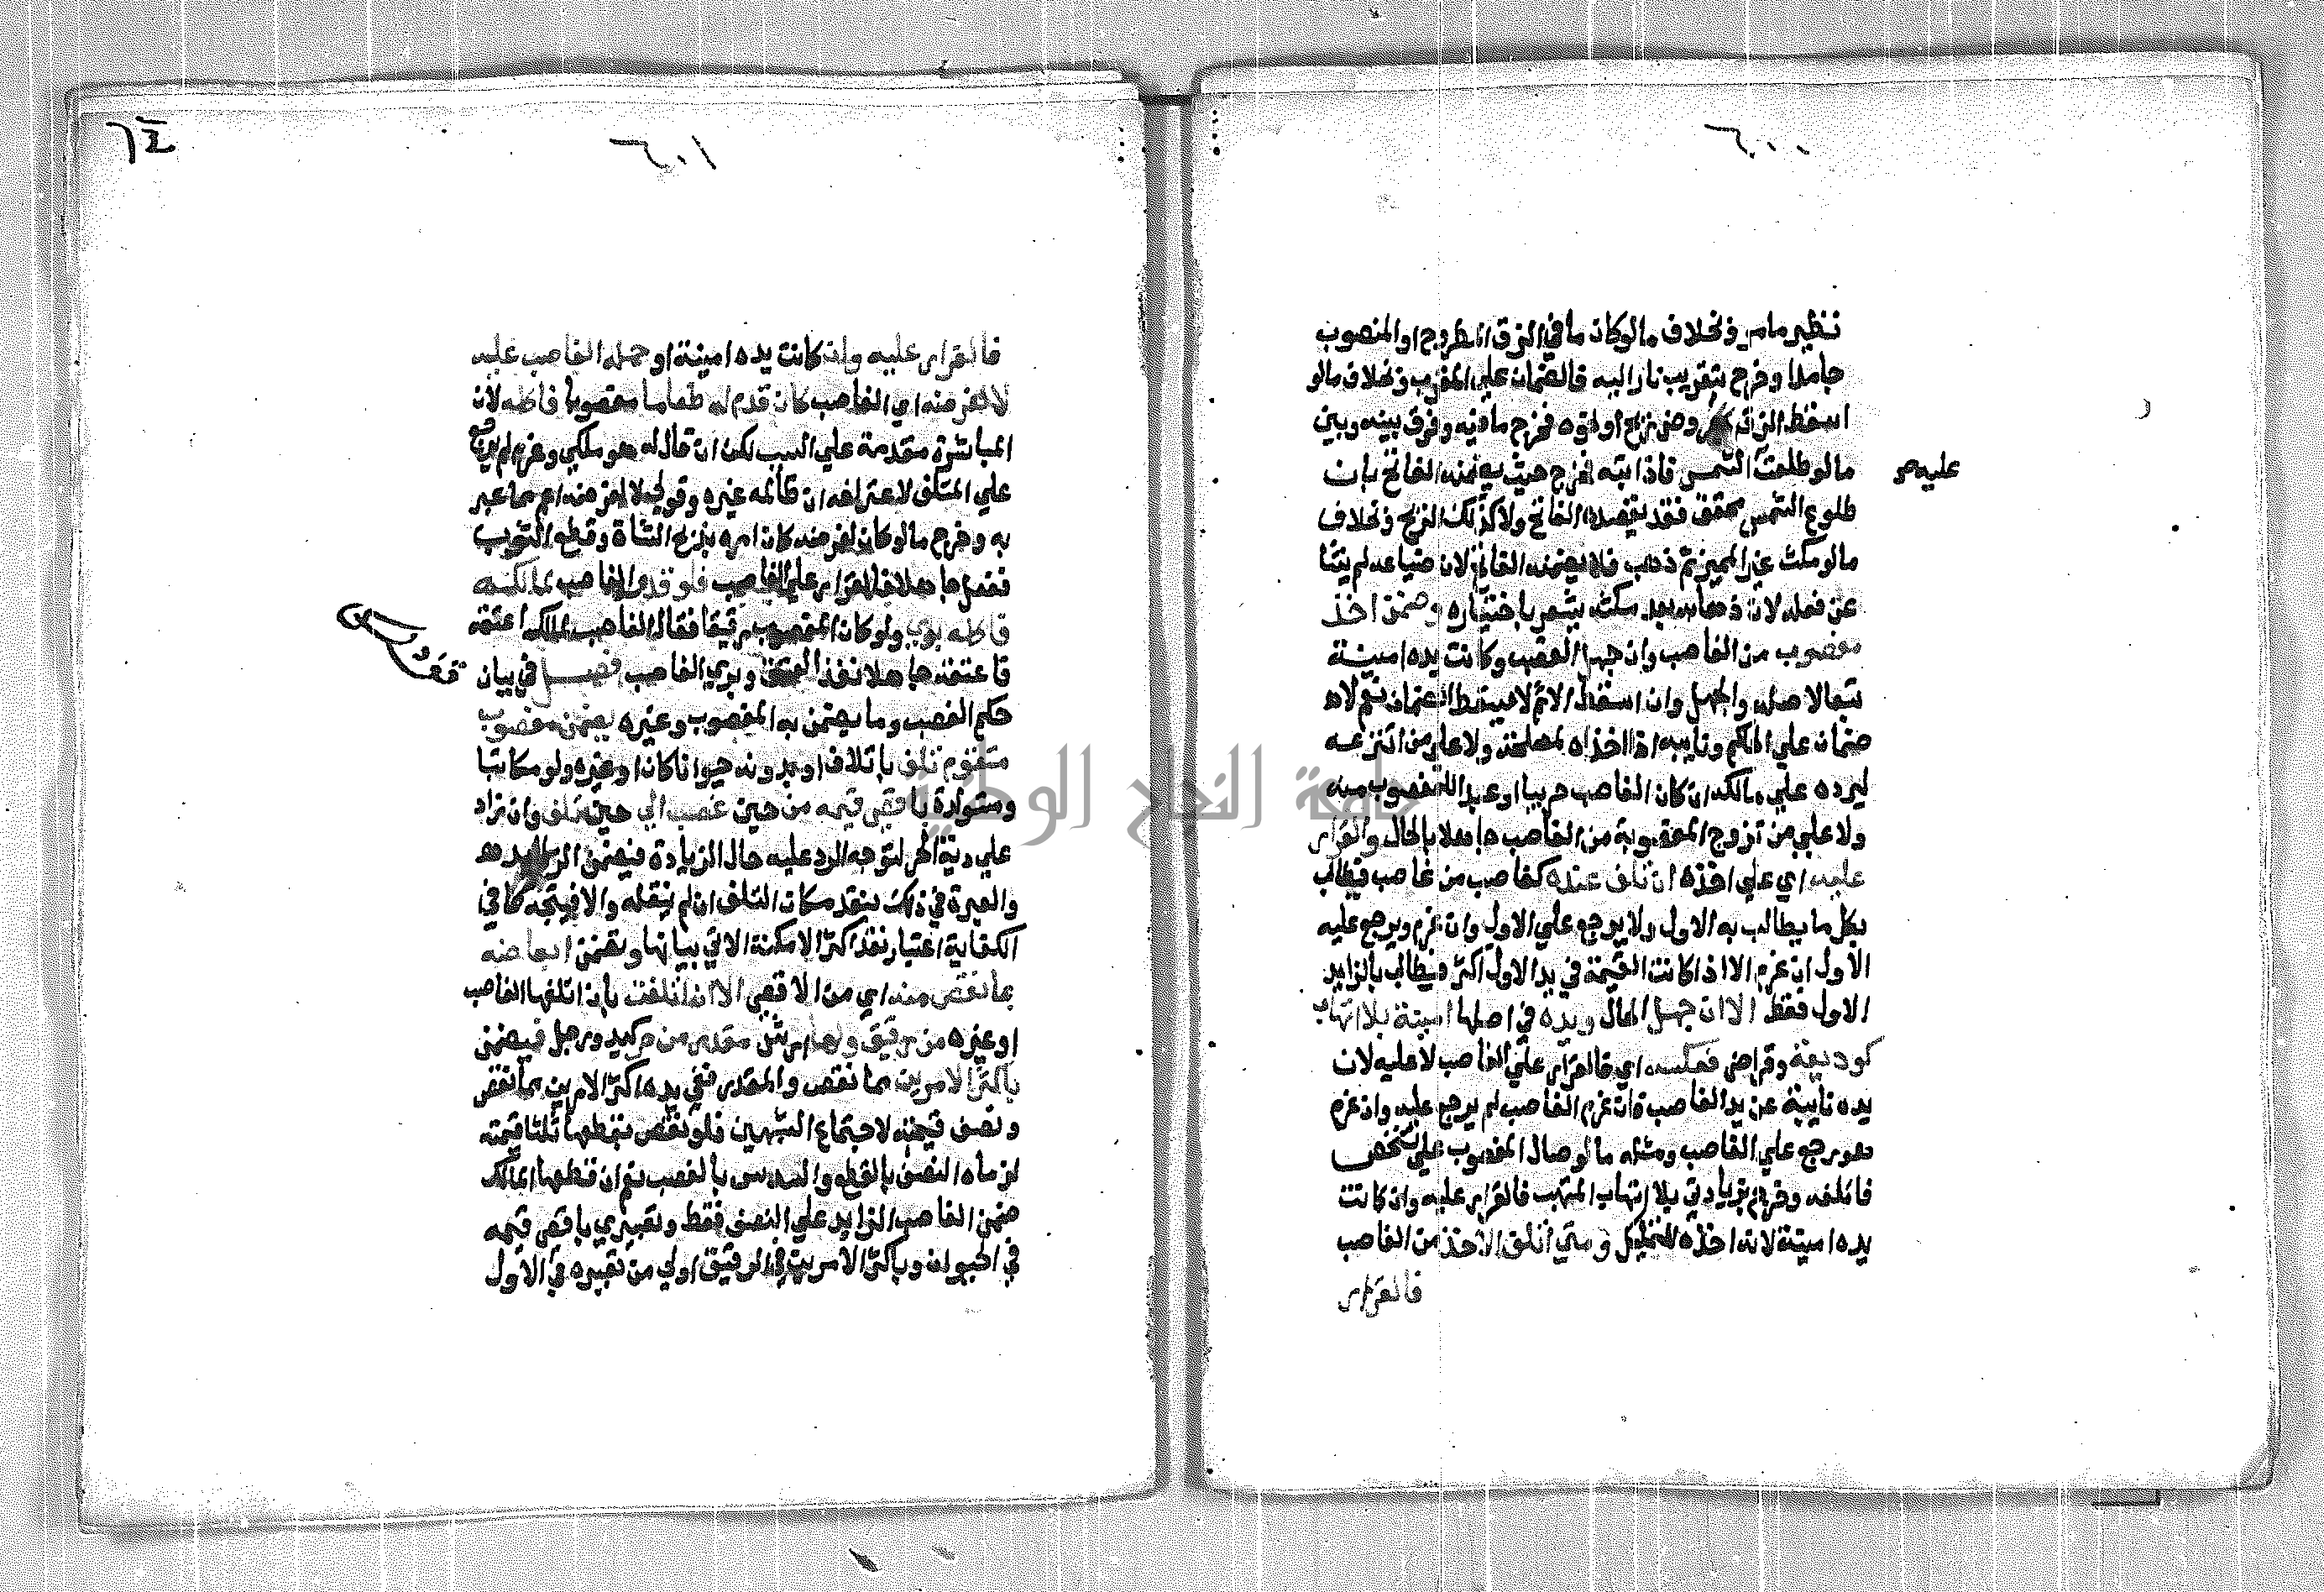 ٢٠٠
نظير مامر وبخلاف مالوكان مافي الزق المطروح او المنصوب
جامدا وخرج بتقريب نار اليه فالضمان علي المقرب وبخلاف مالو
اسقط الزق بعروض ريح او فخرج مافيه وفرق بينه وبين
مالو طلعت الشمس عليه فاذابته فخرج حيث يضمنه الفاتح بان
طلوع الشمس محقق فقد يقصده الفاتح ولا كذلك الريح وبخلاف
مالو مكث غير المميز ثم ذهب فلا يضمنه الفاتح لان ضياعه لم ينشا
عن فعله لان ذهابه بعد مكثه يشعر باختياره وضمن اخذ
مغصوب من الغاصب وان جهل الغصب وكانت يده امينة
تبعا لاصله والجهل وان اسقط الاثم لا يسقط الضمان نعم لا
ضمان علي الحاكم ونايبه اذا اخذاه لمصلحة ولا علي من انتزعه
ليرده علي مالكه ان كان الغاصب حربيا او عبد المغصوب منه
ولا علي من تزوج المغصوبة من الغاصب جاهلا بالحال والقرار
عليه اي علي اخذه ان تلف عنده كغاصب من غاصب فيطالب
بكل ما يطالب به الاول ولا يرجع علي الاول وان غرم ويرجع عليه
الاول ان غرم الا اذا كانت القيمة في يد الاول اكثر فيطالب بالزايد
الاول فقط الا ان جهل الحال ويده في اصلها امينة بلا اتهاب
كوديعة وقراض فعكسه اي فالقرار علي الغاصب لا عليه لان
يده نايبة عن يد الغاصب فان غرم الغاصب لم يرجع عليه وان غرم
هو رجع علي الغاصب ومثله مالو صال المغصوب علي شخص
فاتلفه وخرج بزيادتي بلا اتهاب المتهب فالقرار عليه وان كانت
يده امينة لانه اخذه للتملك ومتي اتلف الاخذ من الغاصب
فالقرار
٢٠١
فالقرار عليه وان كانت يده امينة او حمله الغاصب عليه
لا لغرضه اي الغاصب كان قدم له طعاما مغصوبا فاكله لان
المباشرة مقدمة علي السبب لكن ان قال له هو ملكي وغرم لم يرجع
علي المتلف لاعترافه ان ظالمه غيره وقولي لا لغرضه اعم مما عبر
به وخرج مالو كان لغرضه كان امره بذبح الشاة وقطع الثوب
ففعل جاهلا فالقرار علي الغاصب فلو قدمه الغاصب لمالكه
فاكله بري ولو كان المغصوب رقيقا فقال الغاصب لمالكه اعتقه
فاعتقه جاهلا نفذ العتق وبري الغاصب فصل في بيان
حكم الغصب وما يضمن به المغصوب وغيره يضمن مغصوب
متقوم تلف باتلاف او بدونه حيوانا كان او غيره ولو مكاتبا
ومستولدة باقصي قيمه من حين غصب الي حين تلف وان زاد
علي دية الحر لتوجه الرد عليه حال الزيادة فيضمن الزايد
والعبرة في ذلك بنقد مكان التلف ان لم ينقله والا فيتجه كما في
الكفاية اعتبار نقد اكثر الامكنة الاتي بيانها وتضمن ابعاضه
بما نقص منه اي من الاقصي الا ان اتلفت بان اتلفها الغاصب
او غيره من رقيق ولها ارش مقدر من حر كيد ورجل فيضمن
باكثر الامرين مما نقص والمقدر ففي يده اكثر الامرين مما نقص
ونصف قيمته لاجتماع الشبهين فلو نقص بقطعها ثلثا قيمته
لزماه النصف بالقطع والسدس بالغصب نعم ان قطعها المالك
ضمن الغاصب الزايد علي النصف فقط وتعبيري باقصي قيمه
في الحيوان وباكثر الامرين في الرقيق اولي من تعبيره في الاول
جامعة النجاح الوطنية